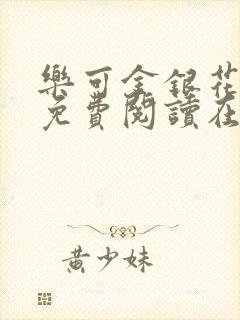 樂可金銀花
免費閱讀在
黃少妹